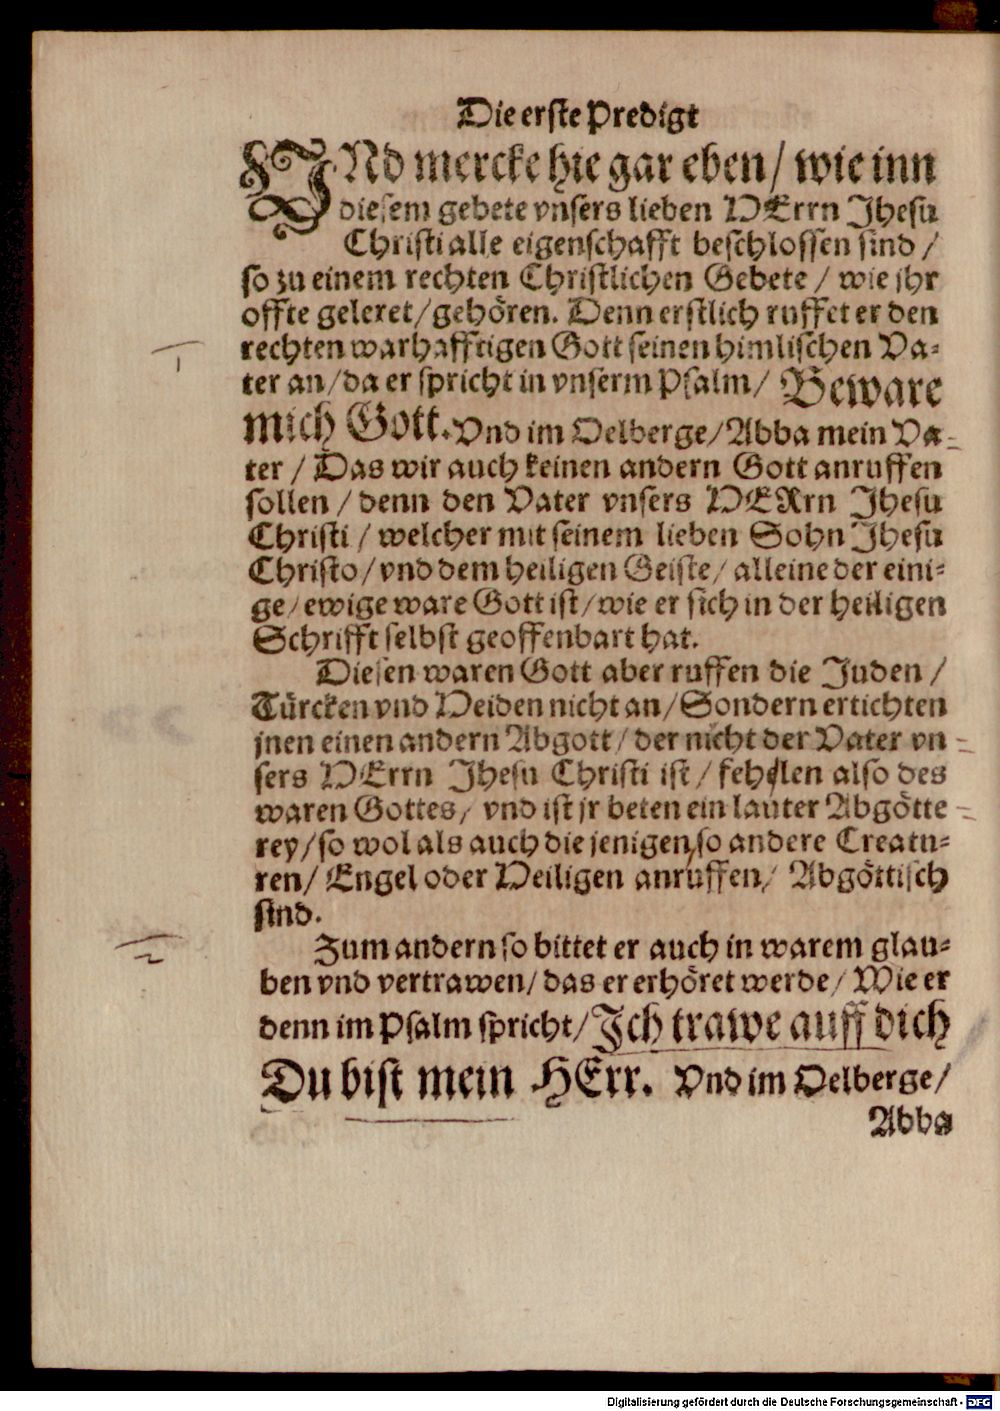 Die erste Predigt
VNd mercke hie gar eben/ wie inn
diesem gebete vnsers lieben HErrn Jhesu
Christi alle eigenschafft beschlossen sind /
so zu einem rechten Christlichen Gebete / wie jhr
offte geleret/gehören. Denn erstlich ruffet er den
rechten warhafftigen Gott seinen himlischen Va-
ter an/da er spricht in vnserm Psalm/ Beware
mich Gott. Vnd im Oelberge/Abba mein Va-
ter / Das wir auch keinen andern Gott anruffen
sollen / denn den Vater vnsers HERrn Jhesu
Christi / welcher mit seinem lieben Sohn Jhesu
Christo/vnd dem heiligen Geiste/ alleine der eini-
ge/ewige ware Gott ist/wie er sich in der heiligen
Schrifft selbst geoffenbart hat.
Diesen waren Gott aber ruffen die Juden /
Türcken vnd Heiden nicht an/Sondern ertichten
jnen einen andern Abgott/der nicht der Vater vn-
sers HErrn Jhesu Christi ist/ fehjlen also des
waren Gottes/ vnd ist jr beten ein lauter Abgötte-
rey/so wol als auch die jenigen,so andere Creatu-
ren/ Engel oder Heiligen anruffen/ Abgöttisch
sind.
Zum andern so bittet er auch in warem glau-
ben vnd vertrawen/das er erhöret werde/ Wie er
denn im Psalm spricht/Ich trawe auff dich
Du bist mein HErr. Vnd im Oelberge/
Abba
Digitalisierung gefördert durch die Deutsche Forschungsgemeinschaft - DFG